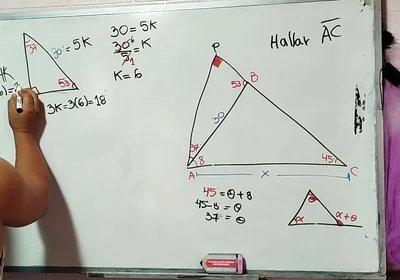 37
30 = 5K
53
3K=3(6)=18
30 = 5K
30 6 = K
5 1
K = 6
Hallar AC
P
53
B
30
37
8
45
A
C
x
45 = θ + 8
45-8 = θ
37 = θ
θ
α
α+θ